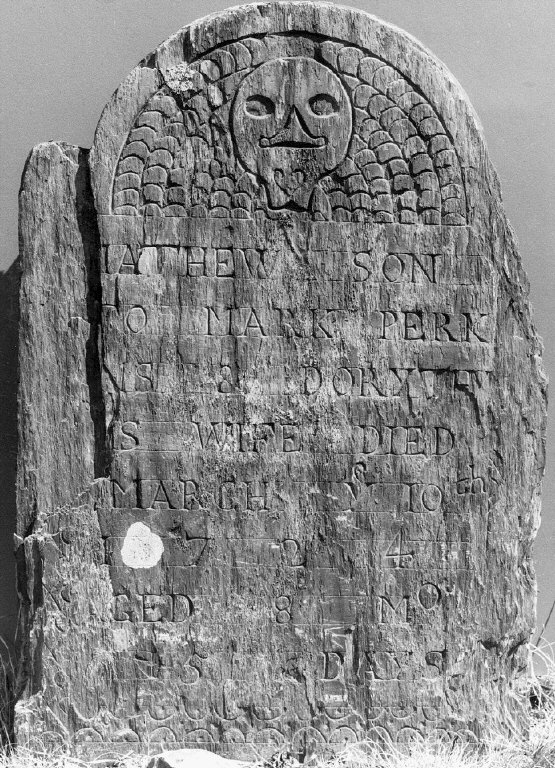 MATHEW SON
TO MARK PERK
INS & DORYTH
S WIFE DIED
MARCH yᵉ 10ᵗʰ
1724
AGED 8 Mᵒ
5 DAYS